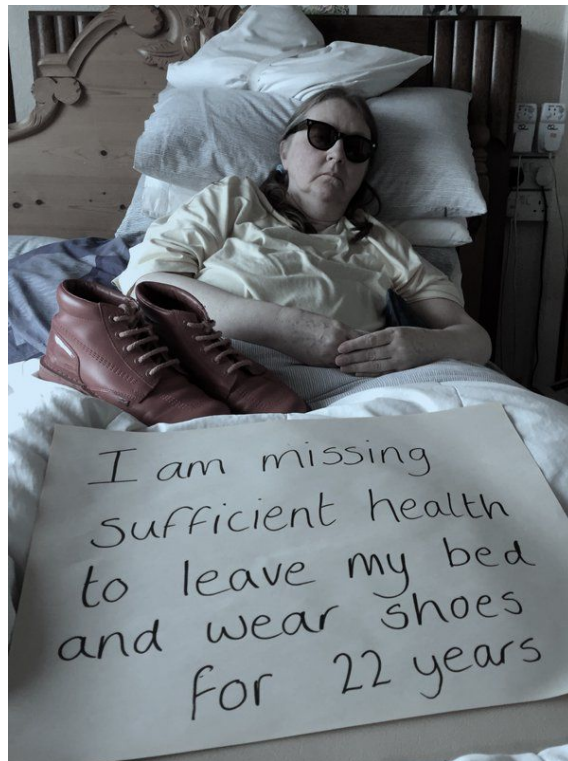 I am missing
sufficient health
to leave my bed
and wear shoes
for 22 years